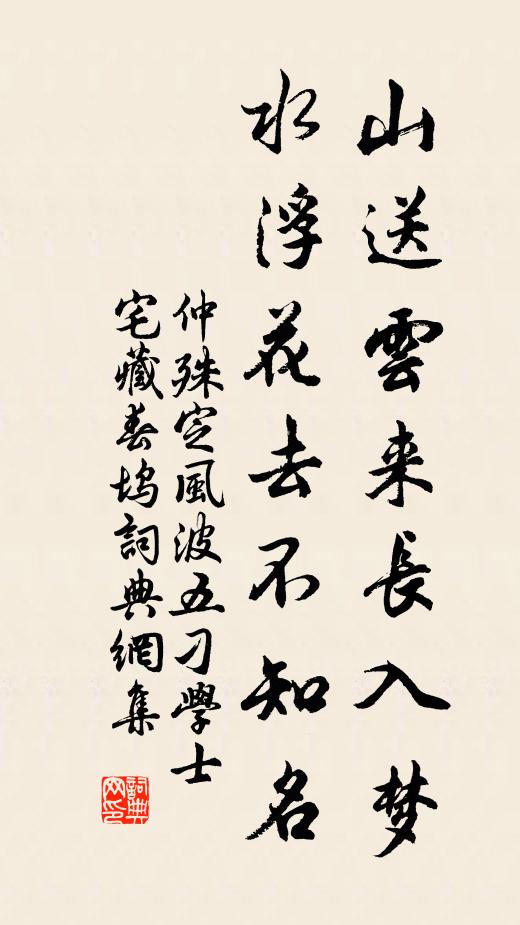 山送雲来長入梦
水浮花去不知名
仲殊定風波五刁學士
宅藏春坞詞典網集
詞典
网印